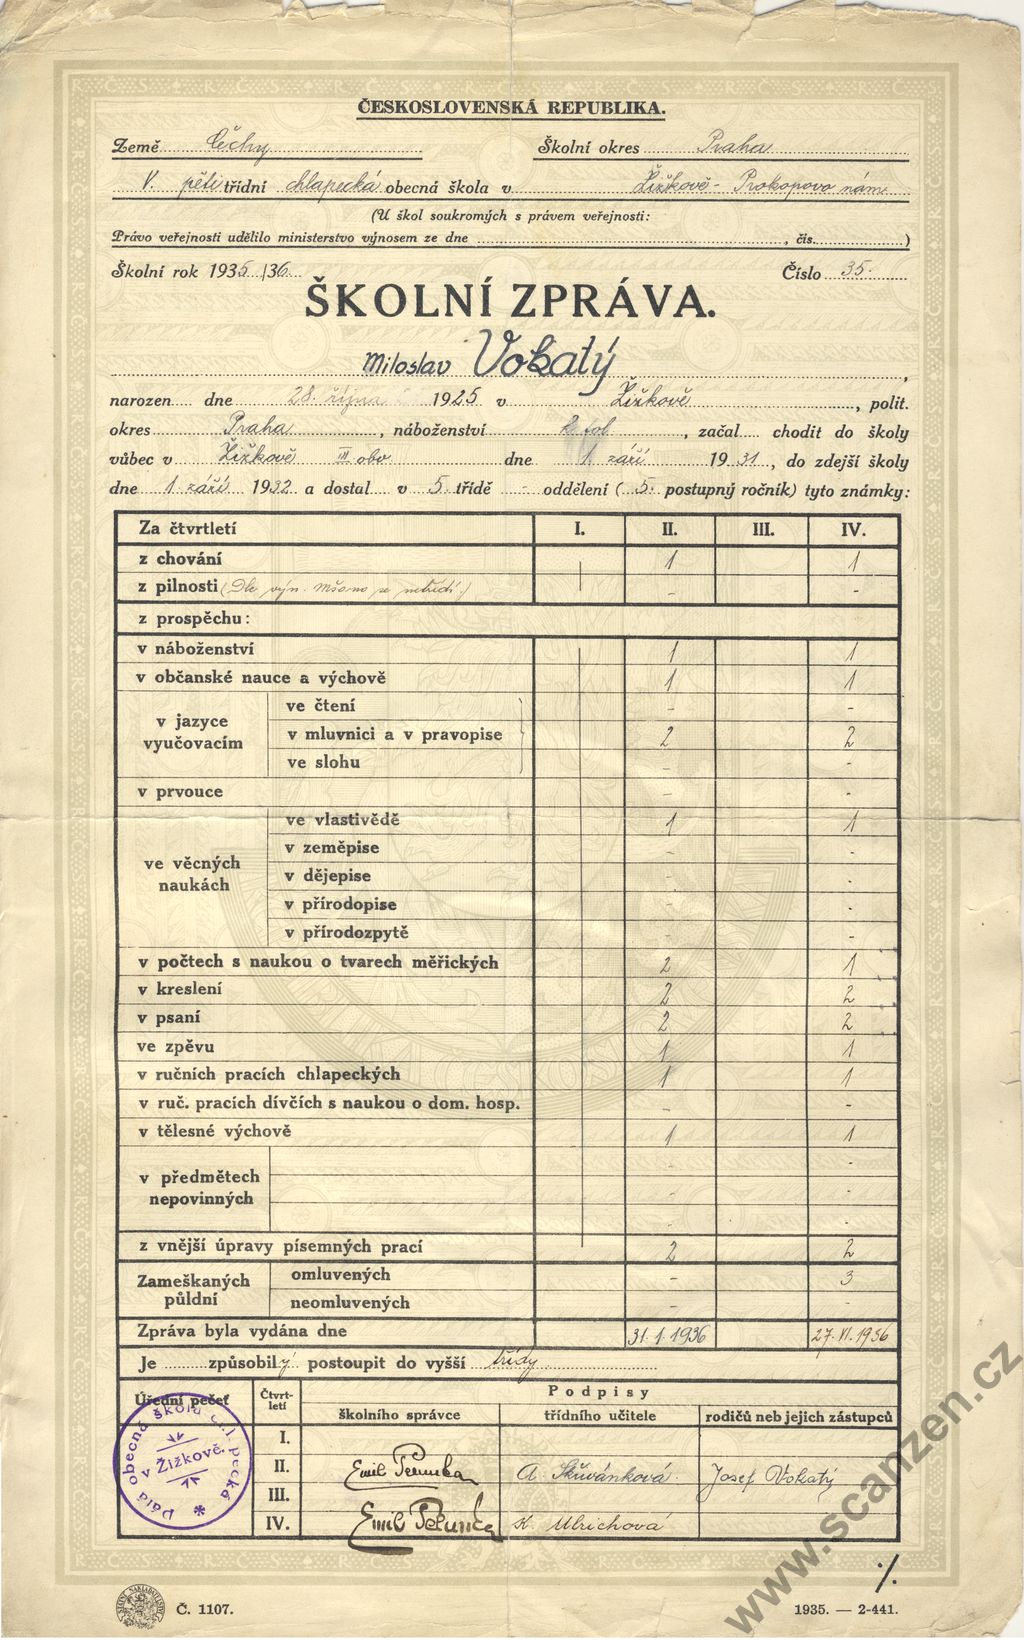 ČESKOSLOVENSKÁ REPUBLIKA.
Země Čechy Školní okres Praha
V. pěti třídní chlapecká obecná škola v Žižkově - Prokopovo nám
(U škol soukromých s právem veřejnosti:
Právo veřejnosti udělilo ministerstvo výnosem ze dne , čis. )
Školní rok 1935/36 Číslo 35.
ŠKOLNÍ ZPRÁVA.
Miloslav Vokatý,
narozen dne 28. října 1925 v Žižkově, polit.
okres Praha, náboženství, začal chodit do školy
vůbec v Žižkově III obo dne 1. září 1931, do zdejší školy
dne 1. září 1932 a dostal v 5. třídě - oddělení (5. postupný ročník) tyto známky:
Za čtvrtletí I. II. III. IV.
z chování 1 1
z pilnosti (Dle výn. se netřídí.) - -
z prospěchu:
v náboženství 1 1
v občanské nauce a výchově 1 1
v jazyce vyučovacím
ve čtení - -
v mluvnici a v pravopise 2 2
ve slohu - -
v prvouce - -
ve věcných naukách
ve vlastivědě 1 1
v zeměpise - -
v dějepise - -
v přírodopise - -
v přírodozpytě - -
v počtech s naukou o tvarech měřických 2 1
v kreslení 2 2
v psaní 2 2
ve zpěvu 1 1
v ručních pracích chlapeckých 1 1
v ruč. pracích dívčích s naukou o dom. hosp. - -
v tělesné výchově 1 1
v předmětech nepovinných - -
- -
- -
z vnější úpravy písemných prací 2 2
Zameškaných půldní
omluvených - 3
neomluvených - -
Zpráva byla vydána dne 31. 1. 1936 27. VI. 1936
Je způsobilý postoupit do vyšší třídy
Úřední pečeť Čtvrtletí Podpisy
školního správce třídního učitele rodičů neb jejich zástupců
I.
II. Emil A. Skřivánková. Josef Vokatý
III.
IV. Emil Ulrichová
Pátá obecná škola chlapecká
v Žižkově.
STÁTNÍ NAKLADATELSTVÍ
Č. 1107.
1935. — 2-441.
www.scanzen.cz